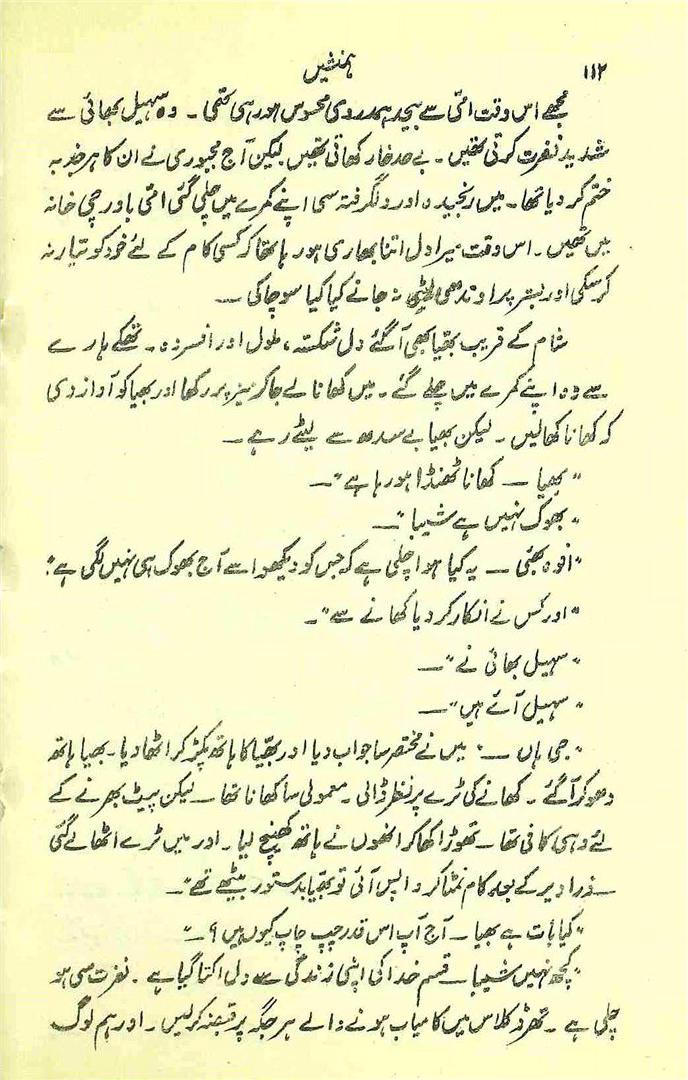 ۱۱۲
ہمنشیں
مجھے اس وقت امّی سے بیحد ہمدردی محسوس ہو رہی تھی۔ وہ سہیل بھائی سے
شدید نفرت کرتی تھیں۔ بے حد خار کھاتی تھیں لیکن آج مجبوری نے ان کا ہر جذبہ
ختم کر دیا تھا۔ میں رنجیدہ اور دلگرفتہ سی اپنے کمرے میں چلی گئی امّی باورچی خانہ
میں تھیں۔ اس وقت میرا دل اتنا بھاری ہو رہا تھا کہ کسی کام کے لئے خود کو تیار نہ
کر سکی اور بستر پر اوندھی لیٹی نہ جانے کیا کیا سوچا کی —
شام کے قریب بھیّا بھی آ گئے دل شکستہ، ملول اور افسردہ۔ تھکے ہارے
سے وہ اپنے کمرے میں چلے گئے۔ میں کھانا لے جا کر میز پر رکھا اور بھیا کو آواز دی
کہ کھانا کھا لیں۔ لیکن بھیا بے سدھ سے لیٹے رہے —
"بھیا — کھانا ٹھنڈا ہو رہا ہے" —
"بھوک نہیں ہے شیبا" —
"افوہ بھئی — یہ کیا ہوا چلی ہے کہ جس کو دیکھو اسے آج بھوک ہی نہیں لگی ہے"
"اور کس نے انکار کر دیا کھانے سے" —
"سہیل بھائی نے" —
"سہیل آئے ہیں" —
"جی ہاں —" میں نے مختصر سا جواب دیا اور بھیّا کا ہاتھ پکڑ کر اٹھا دیا۔ بھیا ہاتھ
دھو کر آ گئے۔ کھانے کی ٹرے پر نظر ڈالی۔ معمولی سا کھانا تھا — لیکن پیٹ بھرنے کے
لئے وہی کافی تھا — تھوڑا کھا کر انھوں نے ہاتھ کھینچ لیا۔ اور میں ٹرے اٹھا لے گئی
— ذرا دیر کے بعد کام نمٹا کر واپس آئی تو بھیّا بدستور بیٹھے تھے" —
"کیا بات ہے بھیا — آج آپ اس قدر چپ چاپ کیوں ہیں؟ —"
"کچھ نہیں شیبا — قسم خدا کی اپنی زندگی سے دل اکتا گیا ہے۔ نفرت سی ہو
چلی ہے — تھرڈ کلاس میں کامیاب ہونے والے ہر جگہ پر قبضہ کر لیں۔ اور ہم لوگ